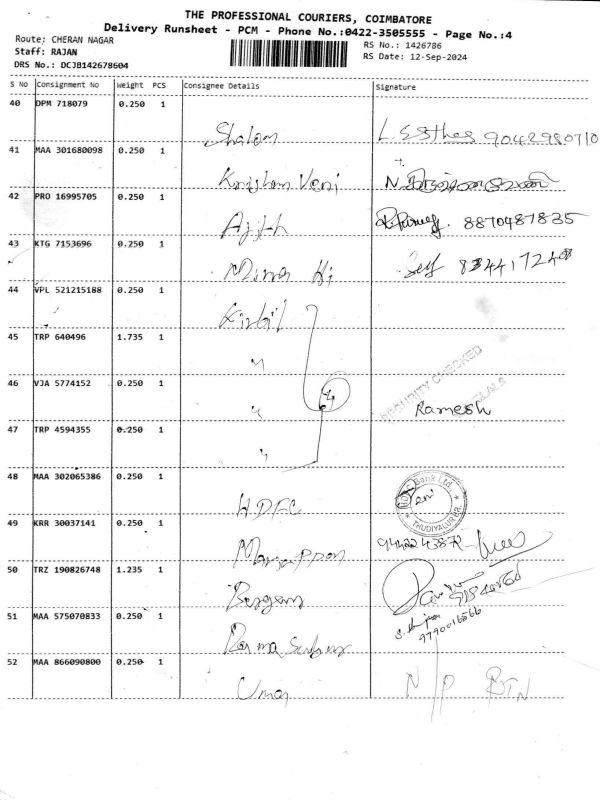 THE PROFESSIONAL COURIERS, COIMBATORE
Delivery Runsheet - PCM - Phone No.:0422-3505555 - Page No.:4
Route; CHERAN NAGAR
RS No.: 1426786
Staff: RAJAN
RS Date: 12-Sep-2024
DRS No.: DCJB142678604
S No Consignment No Weight PCS Consignee Details Signature
40 DPM 718079 0.250 1
Shalom L. Esther 9042980710
41 MAA 301680098 0.250 1
Krishna Veni N.
42 PRO 16995705 0.250 1
Ajith 8870487835
43 KTG 7153696 0.250 1
Mina Ki
44 VPL 521215188 0.250 1
45 TRP 640496 1.735 1
"
SECURITY CHECKED
46 VJA 5774152 0.250 1
" 4 Ramesh
47 TRP 4594355 0.250 1
"
48 MAA 302065386 0.250 1
HDFC
Bank Ltd.
THUDIYALUR BR.
49 KRR 30037141 0.250 1
50 TRZ 190826748 1.235 1
51 MAA 575070833 0.250 1
9790016566
52 MAA 866090800 0.250 1
Uma N/P RTN